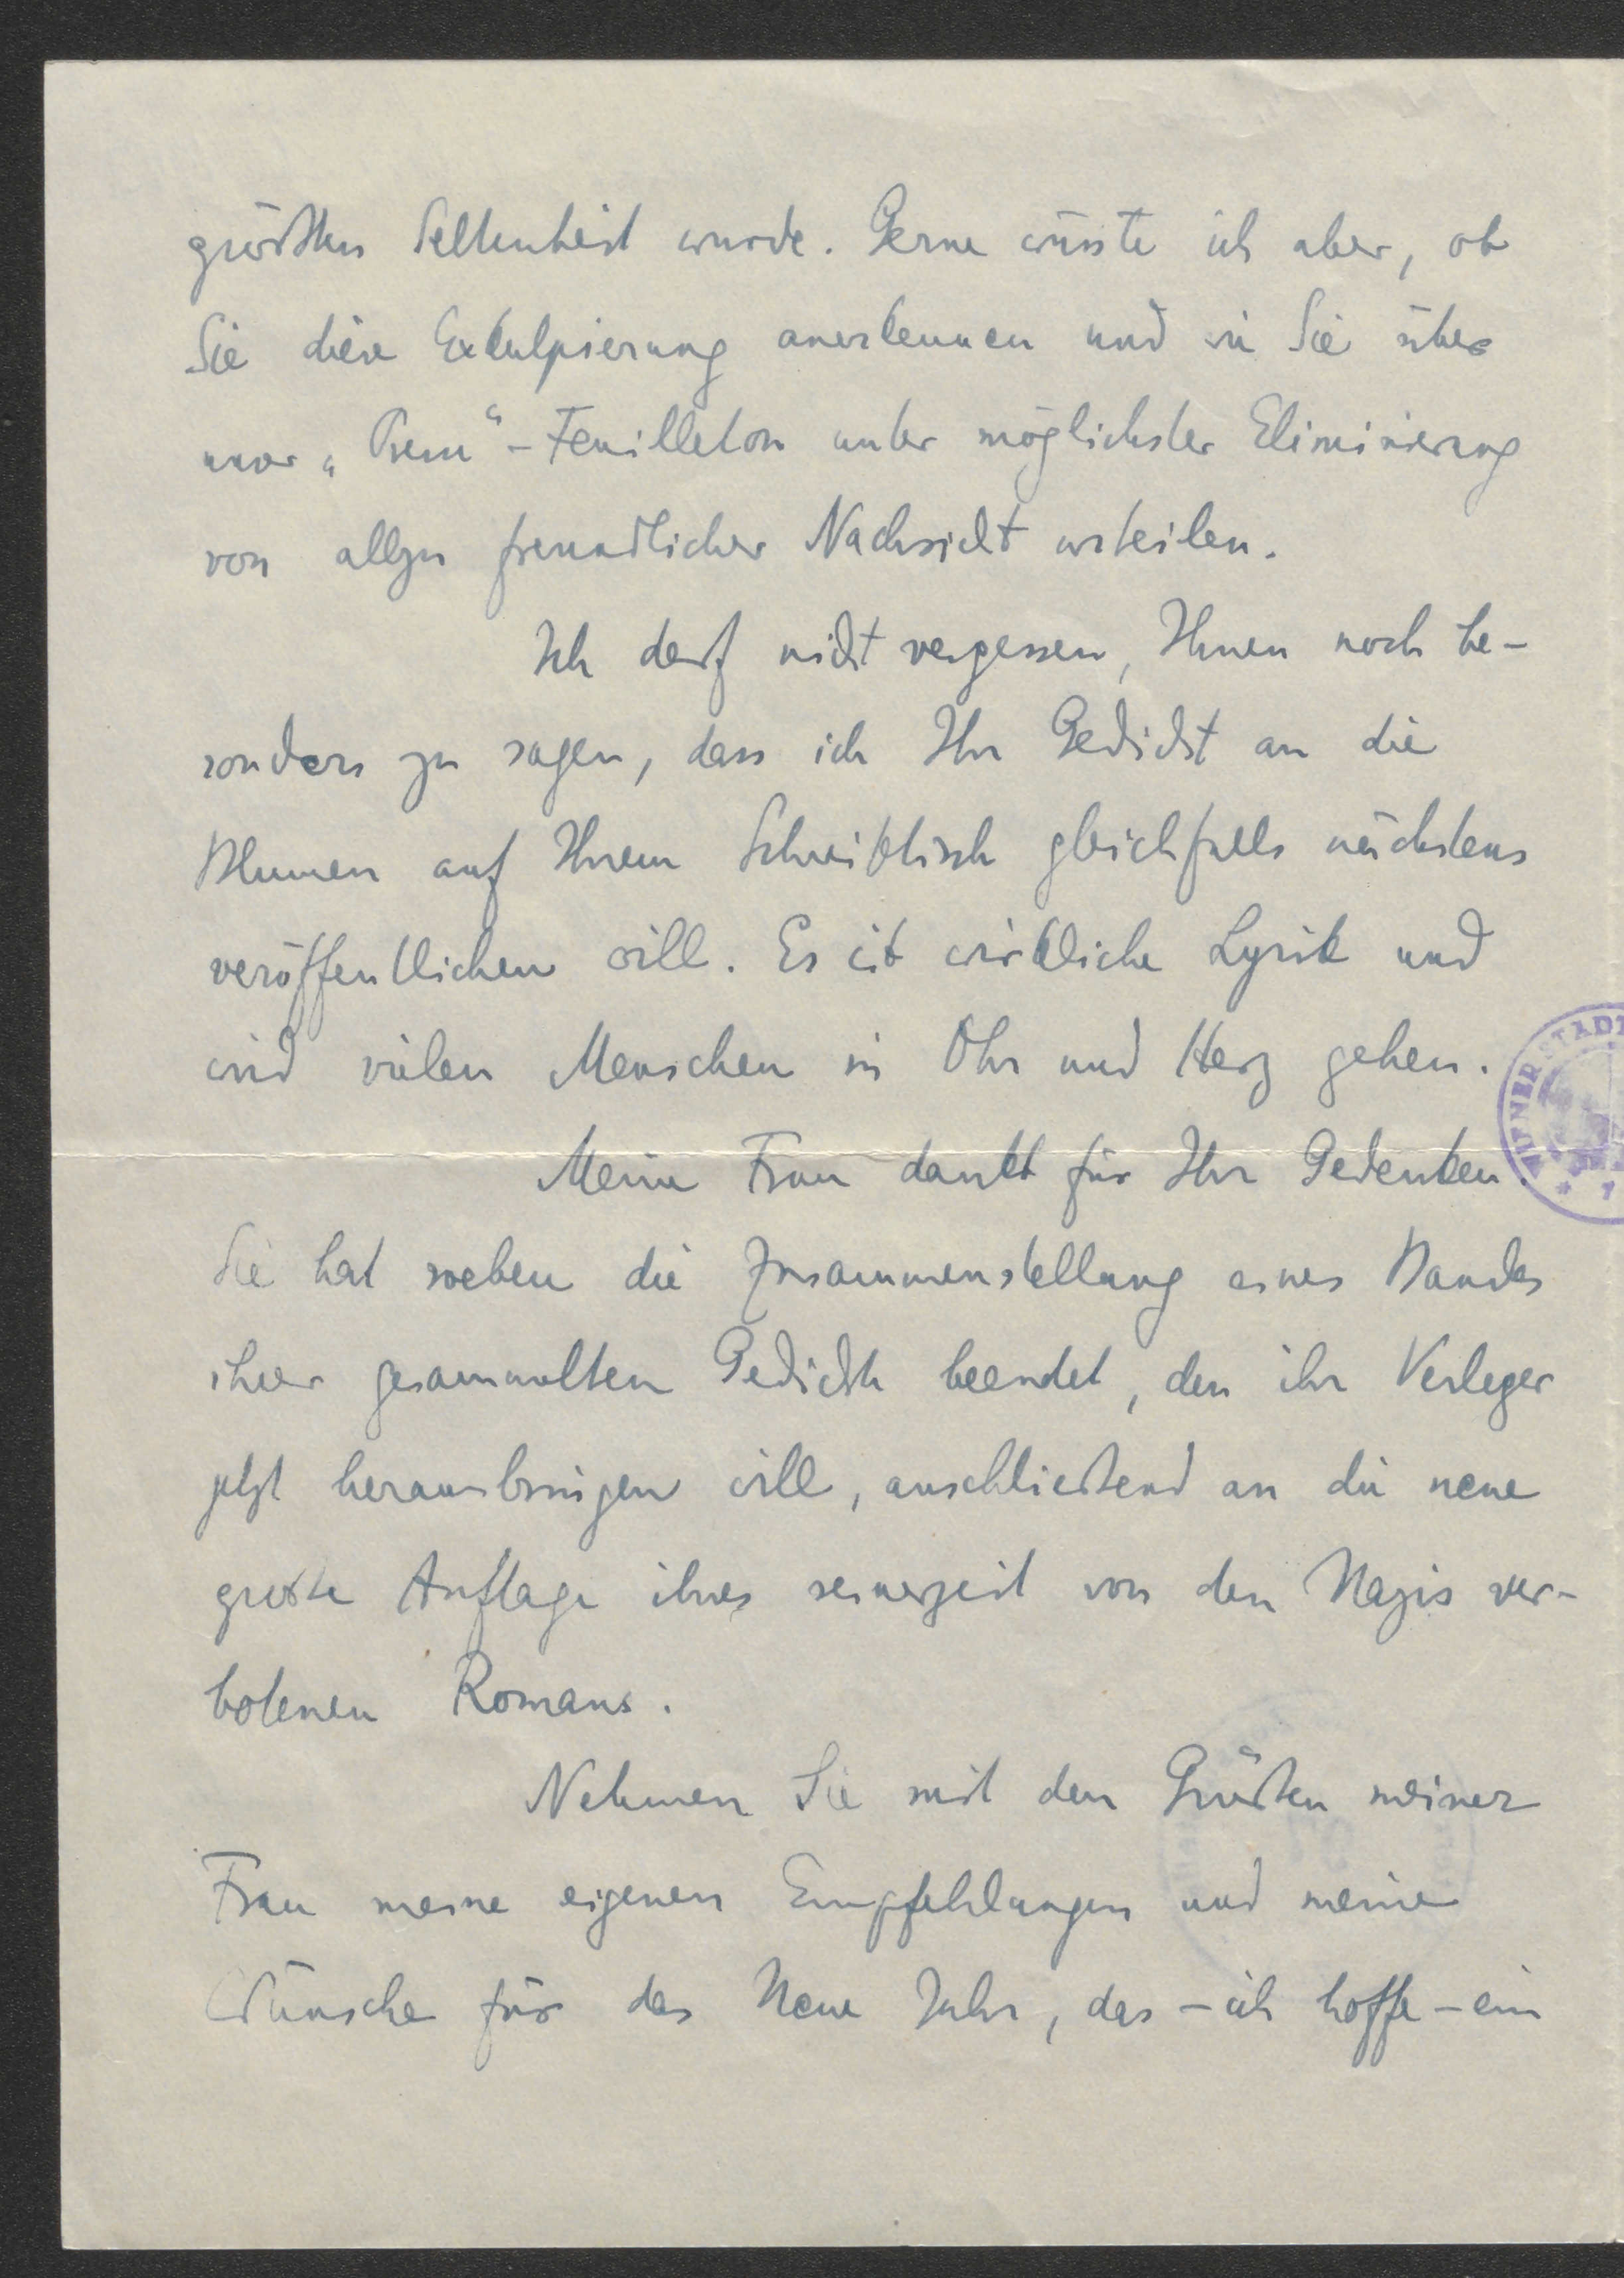 größten Seltenheit wurde. Gerne wüsste ich aber, ob
Sie diese Exkulpierung anerkennen und wie Sie über
unser „Presse"-Feuilleton unter möglichster Eliminierung
von allzu freundlicher Nachsicht urteilen.
Ich darf nicht vergessen, Ihnen noch be-
sonders zu sagen, dass ich Ihr Gedicht an die
Blumen auf Ihrem Schreibtisch gleichfalls nächstens
veröffentlichen will. Es ist wirkliche Lyrik und
wird vielen Menschen in Ohr und Herz gehen.
Meine Frau dankt für Ihr Gedenken.
Sie hat soeben die Zusammenstellung eines Bandes
ihrer gesammelten Gedichte beendet, den ihr Verleger
jetzt herausbringen will, anschließend an die neue
große Auflage ihres seinerzeit von den Nazis ver-
botenen Romans.
Nehmen Sie mit den Grüßen meiner
Frau meine eigenen Empfehlungen und meine
Wünsche für das Neue Jahr, das – ich hoffe – ein
WIENER STADT